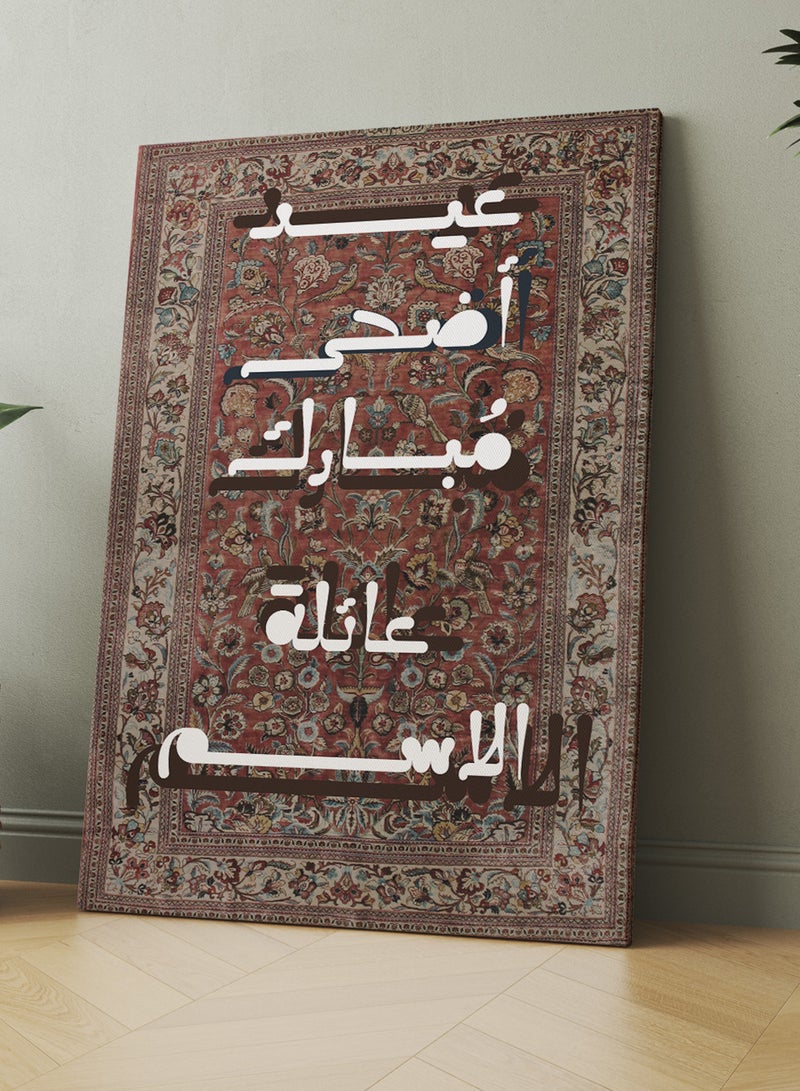 عيد
أضحى
مُبارك
عائلة
الاسم